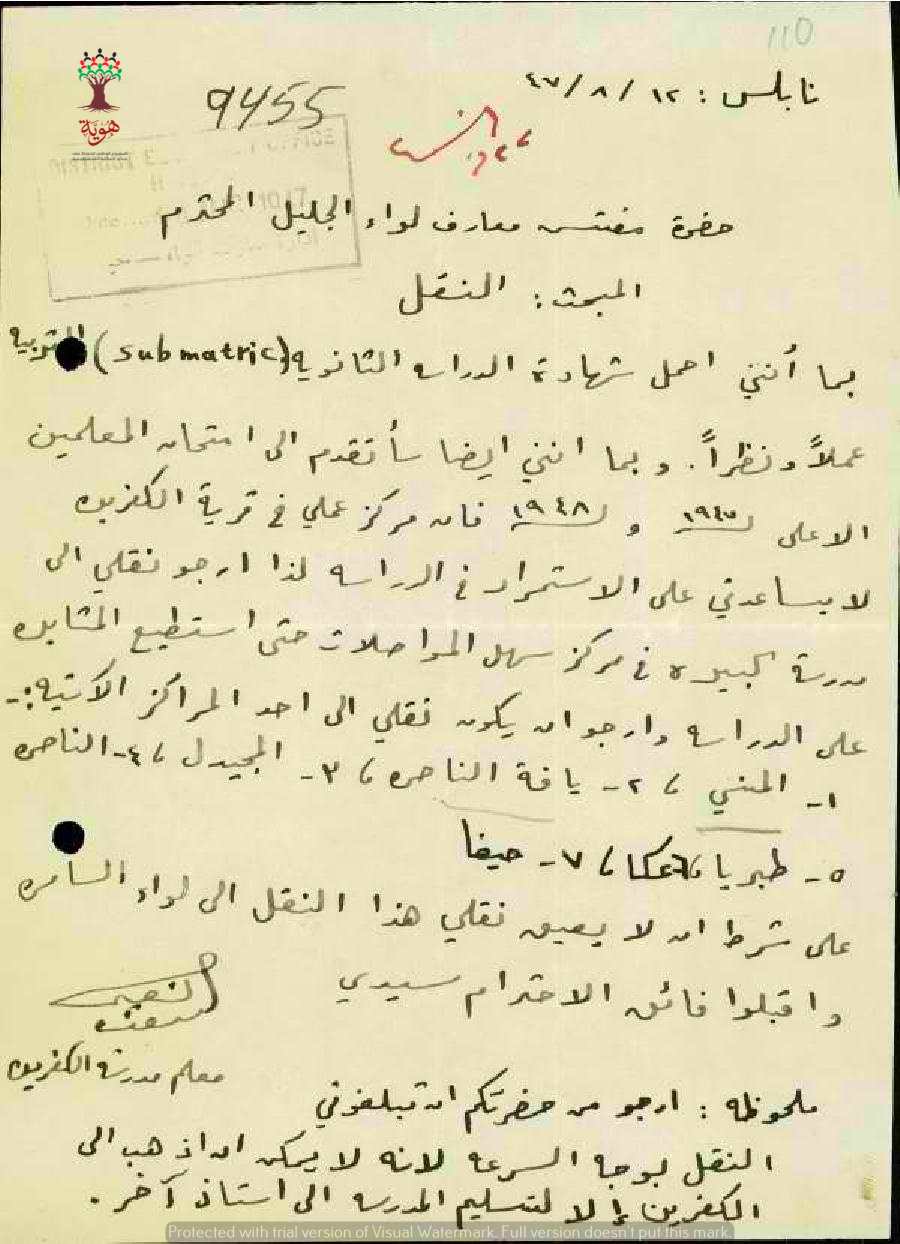 110
نابلس : ١٢ / ٨ / ٤٧
9455
هوية
حضرة مفتش معارف لواء الجليل المحترم
المبحث : النقل
بما أنني احمل شهادة الدراسه الثانويه (submatric) التربيه
عملاً ونظراً . وبما انني ايضا سأتقدم الى امتحان المعلمين
الاعلى لـ ١٩٤٧ و لـ ١٩٤٨ فان مركز عملي في قرية الكفرين
لا يساعدني على الاستمرار في الدراسه لذا ارجو نقلي الى
مدرسة كبيره في مركز سهل المواصلات حتى استطيع المثابره
على الدراسه وارجو ان يكون نقلي الى احد المراكز الآتيه :-
١- المنسي ، ٢- يافة الناصره ، ٣- المجيدل ، ٤- الناصره
٥- طبريا ، ٦- عكا ، ٧- حيفا
على شرط ان لا يعيق نقلي هذا النقل الى لواء السامره
واقبلوا فائق الاحترام سيدي
معلم مدرسة الكفرين
ملحوظه : ارجو من حضرتكم ان تبلغوني
النقل بوجه السرعه لانه لا يمكن ان اذهب الى
الكفرين إلا لتسليم المدرسه الى استاذ آخر .
Protected with trial version of Visual Watermark. Full version doesn't put this mark.